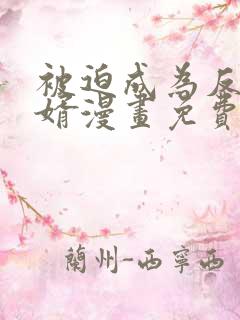 被迫成為反
婿漫畫免費
蘭州-西寧西